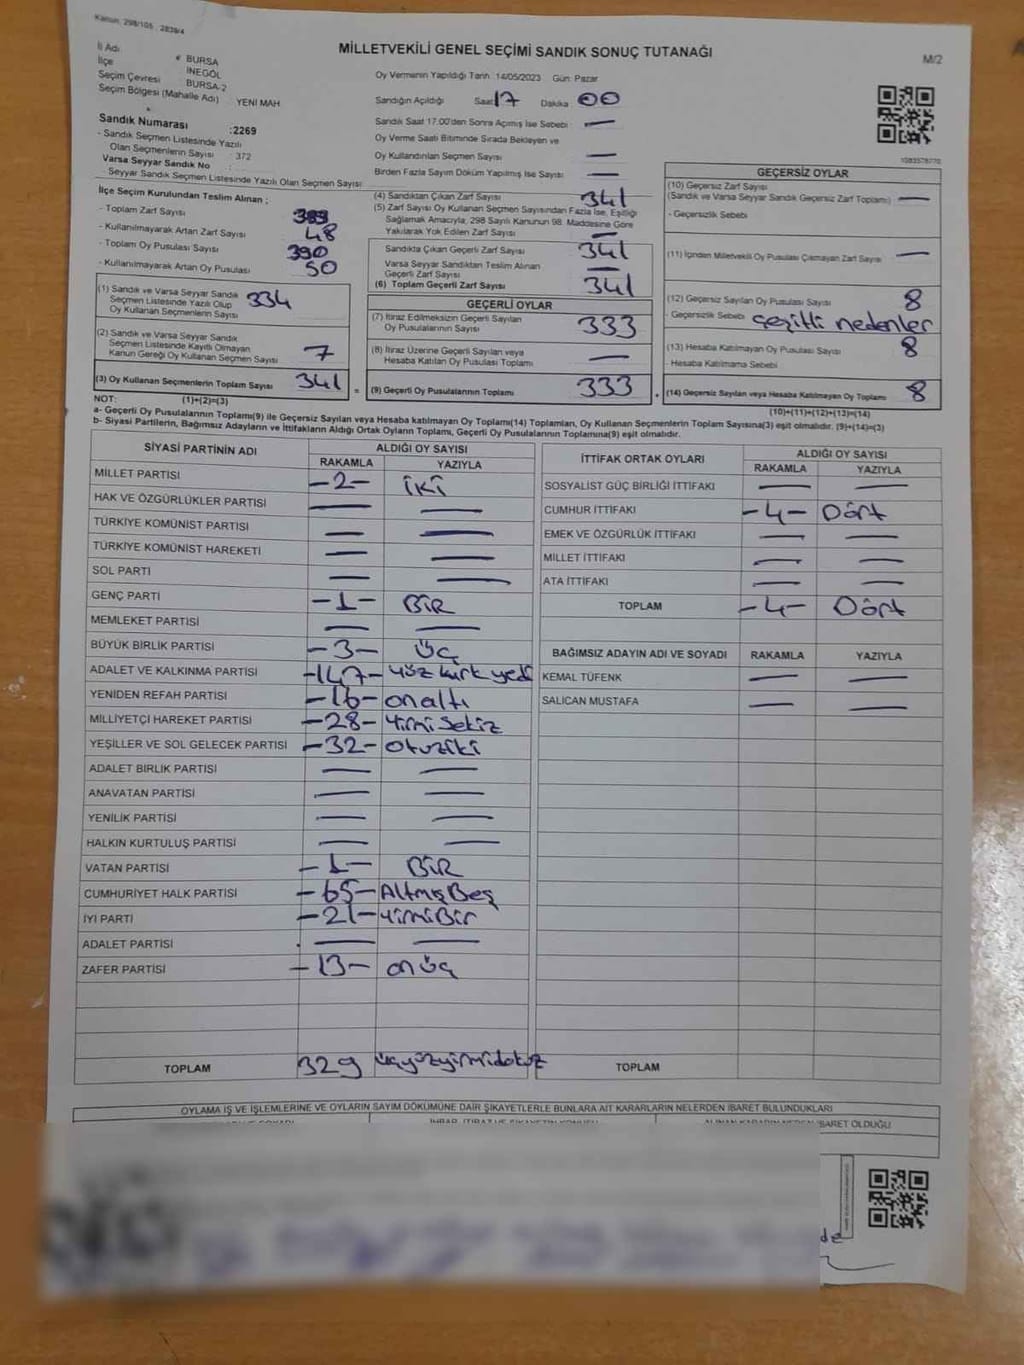 Kanun, 298/105 , 2839/4
MİLLETVEKİLİ GENEL SEÇİMİ SANDIK SONUÇ TUTANAĞI
M/2
İl Adı : BURSA
İlçe İNEGÖL
Seçim Çevresi BURSA-2
Seçim Bölgesi (Mahalle Adı) YENİ MAH
Sandık Numarası :2269
- Sandık Seçmen Listesinde Yazılı
Olan Seçmenlerin Sayısı : 372
Varsa Seyyar Sandık No :
- Seyyar Sandık Seçmen Listesinde Yazılı Olan Seçmen Sayısı
İlçe Seçim Kurulundan Teslim Alınan ;
- Toplam Zarf Sayısı 389
- Kullanılmayarak Artan Zarf Sayısı 48
- Toplam Oy Pusulası Sayısı 390
- Kullanılmayarak Artan Oy Pusulası 50
(1) Sandık ve Varsa Seyyar Sandık
Seçmen Listesinde Yazılı Olup
Oy Kullanan Seçmenlerin Sayısı 334
(2) Sandık ve Varsa Seyyar Sandık
Seçmen Listesinde Kayıtlı Olmayan
Kanun Gereği Oy Kullanan Seçmen Sayısı 7
(3) Oy Kullanan Seçmenlerin Toplam Sayısı 341
Oy Vermenin Yapıldığı Tarih :14/05/2023 Gün: Pazar
Sandığın Açıldığı Saat 17 Dakika : 00
Sandık Saat 17.00'den Sonra Açılmış İse Sebebi : —
Oy Verme Saati Bitiminde Sırada Bekleyen ve
Oy Kullandırılan Seçmen Sayısı —
Birden Fazla Sayım Döküm Yapılmış İse Sayısı : —
(4) Sandıktan Çıkan Zarf Sayısı 341
(5) Zarf Sayısı Oy Kullanan Seçmen Sayısından Fazla İse, Eşitliği
Sağlamak Amacıyla, 298 Sayılı Kanunun 98. Maddesine Göre
Yakılarak Yok Edilen Zarf Sayısı —
Sandıkta Çıkan Geçerli Zarf Sayısı 341
Varsa Seyyar Sandıktan Teslim Alınan
Geçerli Zarf Sayısı —
(6) Toplam Geçerli Zarf Sayısı 341
GEÇERLİ OYLAR
(7) İtiraz Edilmeksizin Geçerli Sayılan
Oy Pusulalarının Sayısı 333
(8) İtiraz Üzerine Geçerli Sayılan veya
Hesaba Katılan Oy Pusulası Toplamı —
= (9) Geçerli Oy Pusulalarının Toplamı 333
1083578770
GEÇERSİZ OYLAR
(10) Geçersiz Zarf Sayısı
(Sandık ve Varsa Seyyar Sandık Geçersiz Zarf Toplamı) —
- Geçersizlik Sebebi
(11) İçinden Milletvekili Oy Pusulası Çıkmayan Zarf Sayısı —
(12) Geçersiz Sayılan Oy Pusulası Sayısı 8
- Geçersizlik Sebebi çeşitli nedenler
(13) Hesaba Katılmayan Oy Pusulası Sayısı 8
- Hesaba Katılmama Sebebi
(14) Geçersiz Sayılan veya Hesaba Katılmayan Oy Toplamı 8
NOT: (1)+(2)=(3) (10)+(11)+(12)+(13)=(14)
a- Geçerli Oy Pusulalarının Toplamı(9) ile Geçersiz Sayılan veya Hesaba katılmayan Oy Toplamı(14) Toplamları, Oy Kullanan Seçmenlerin Toplam Sayısına(3) eşit olmalıdır. (9)+(14)=(3)
b- Siyasi Partilerin, Bağımsız Adayların ve İttifakların Aldığı Ortak Oyların Toplamı, Geçerli Oy Pusulalarının Toplamına(9) eşit olmalıdır.
SİYASİ PARTİNİN ADI ALDIĞI OY SAYISI
RAKAMLA YAZIYLA
MİLLET PARTİSİ -2- iki
HAK VE ÖZGÜRLÜKLER PARTİSİ — —
TÜRKİYE KOMÜNİST PARTİSİ — —
TÜRKİYE KOMÜNİST HAREKETİ — —
SOL PARTİ — —
GENÇ PARTİ -1- BİR
MEMLEKET PARTİSİ — —
BÜYÜK BİRLİK PARTİSİ -3- üç
ADALET VE KALKINMA PARTİSİ -147- yüz kırk yedi
YENİDEN REFAH PARTİSİ -16- onaltı
MİLLİYETÇİ HAREKET PARTİSİ -28- yirmi sekiz
YEŞİLLER VE SOL GELECEK PARTİSİ -32- otuziki
ADALET BİRLİK PARTİSİ — —
ANAVATAN PARTİSİ — —
YENİLİK PARTİSİ — —
HALKIN KURTULUŞ PARTİSİ — —
VATAN PARTİSİ -1- BİR
CUMHURİYET HALK PARTİSİ -65- Altmış Beş
İYİ PARTİ -21- yirmi Bir
ADALET PARTİSİ — —
ZAFER PARTİSİ -13- on üç
TOPLAM 329 üçyüzyirmidokuz
İTTİFAK ORTAK OYLARI ALDIĞI OY SAYISI
RAKAMLA YAZIYLA
SOSYALİST GÜÇ BİRLİĞİ İTTİFAKI — —
CUMHUR İTTİFAKI -4- Dört
EMEK VE ÖZGÜRLÜK İTTİFAKI — —
MİLLET İTTİFAKI — —
ATA İTTİFAKI — —
TOPLAM -4- Dört
BAĞIMSIZ ADAYIN ADI VE SOYADI RAKAMLA YAZIYLA
KEMAL TÜFENK — —
SALİCAN MUSTAFA — —
TOPLAM
OYLAMA İŞ VE İŞLEMLERİNE VE OYLARIN SAYIM DÖKÜMÜNE DAİR ŞİKAYETLERLE BUNLARA AİT KARARLARIN NELERDEN İBARET BULUNDUKLARI
İBARET OLDUĞU